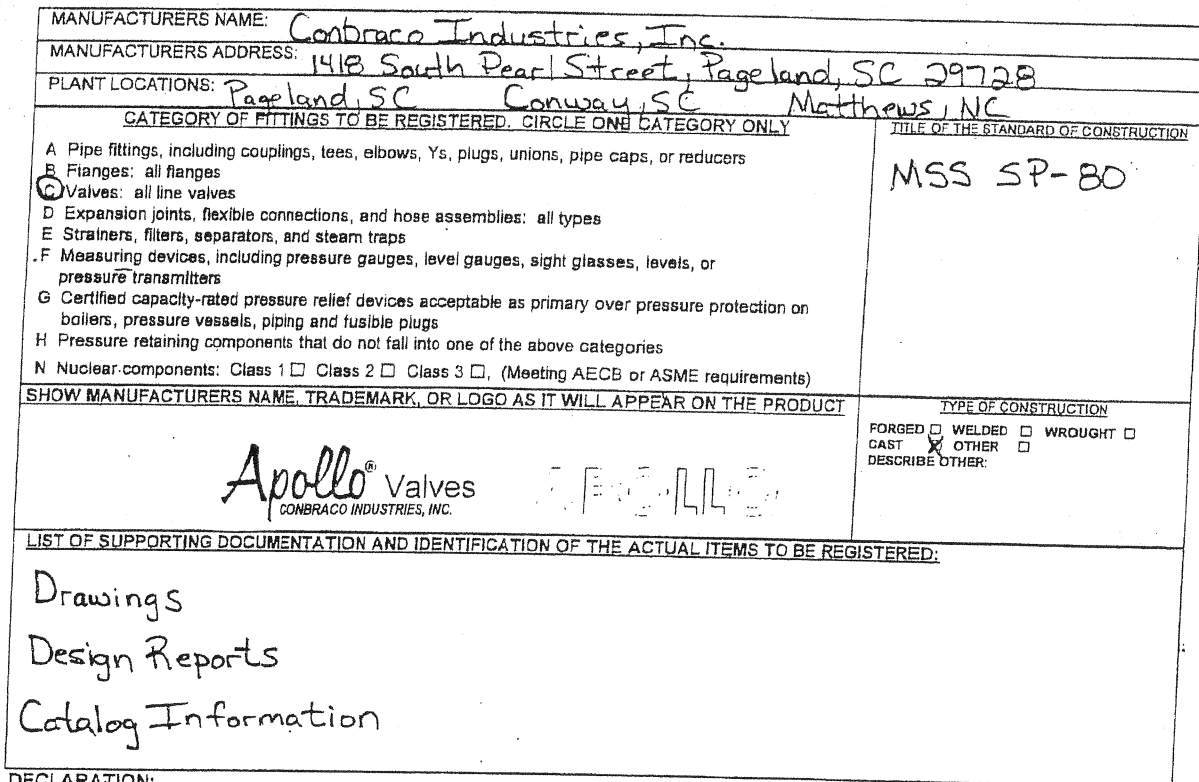 MANUFACTURERS NAME: Conbraco Industries, Inc.
MANUFACTURERS ADDRESS: 1418 South Pearl Street, Pageland, SC 29728
PLANT LOCATIONS: Pageland, SC Conway, SC Matthews, NC
CATEGORY OF FITTINGS TO BE REGISTERED. CIRCLE ONE CATEGORY ONLY
A Pipe fittings, including couplings, tees, elbows, Ys, plugs, unions, pipe caps, or reducers
B Flanges: all flanges
C Valves: all line valves
D Expansion joints, flexible connections, and hose assemblies: all types
E Strainers, filters, separators, and steam traps
F Measuring devices, including pressure gauges, level gauges, sight glasses, levels, or
pressure transmitters
G Certified capacity-rated pressure relief devices acceptable as primary over pressure protection on
boilers, pressure vessels, piping and fusible plugs
H Pressure retaining components that do not fall into one of the above categories
N Nuclear components: Class 1 ☐ Class 2 ☐ Class 3 ☐, (Meeting AECB or ASME requirements)
TITLE OF THE STANDARD OF CONSTRUCTION
MSS SP-80
SHOW MANUFACTURERS NAME, TRADEMARK, OR LOGO AS IT WILL APPEAR ON THE PRODUCT
Apollo® Valves
CONBRACO INDUSTRIES, INC.
APOLLO
TYPE OF CONSTRUCTION
FORGED ☐ WELDED ☐ WROUGHT ☐
CAST ☒ OTHER ☐
DESCRIBE OTHER:
LIST OF SUPPORTING DOCUMENTATION AND IDENTIFICATION OF THE ACTUAL ITEMS TO BE REGISTERED:
Drawings
Design Reports
Catalog Information
DECLARATION: